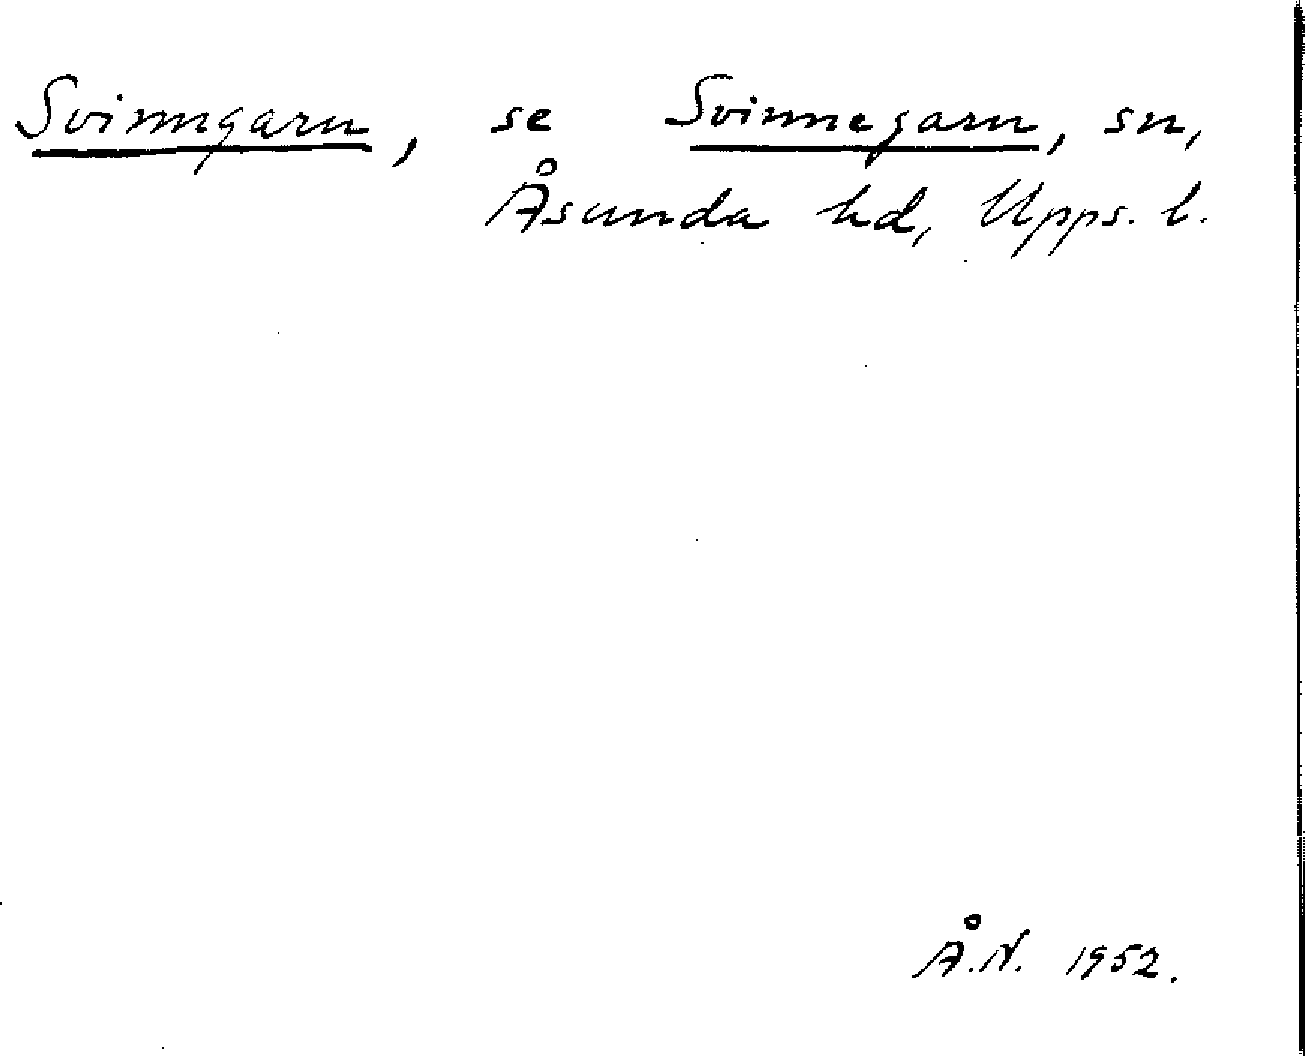 Svinngarn, se Svinnegarn, sn,
Åsunda hd, Upps. l.
Å.N. 1952.